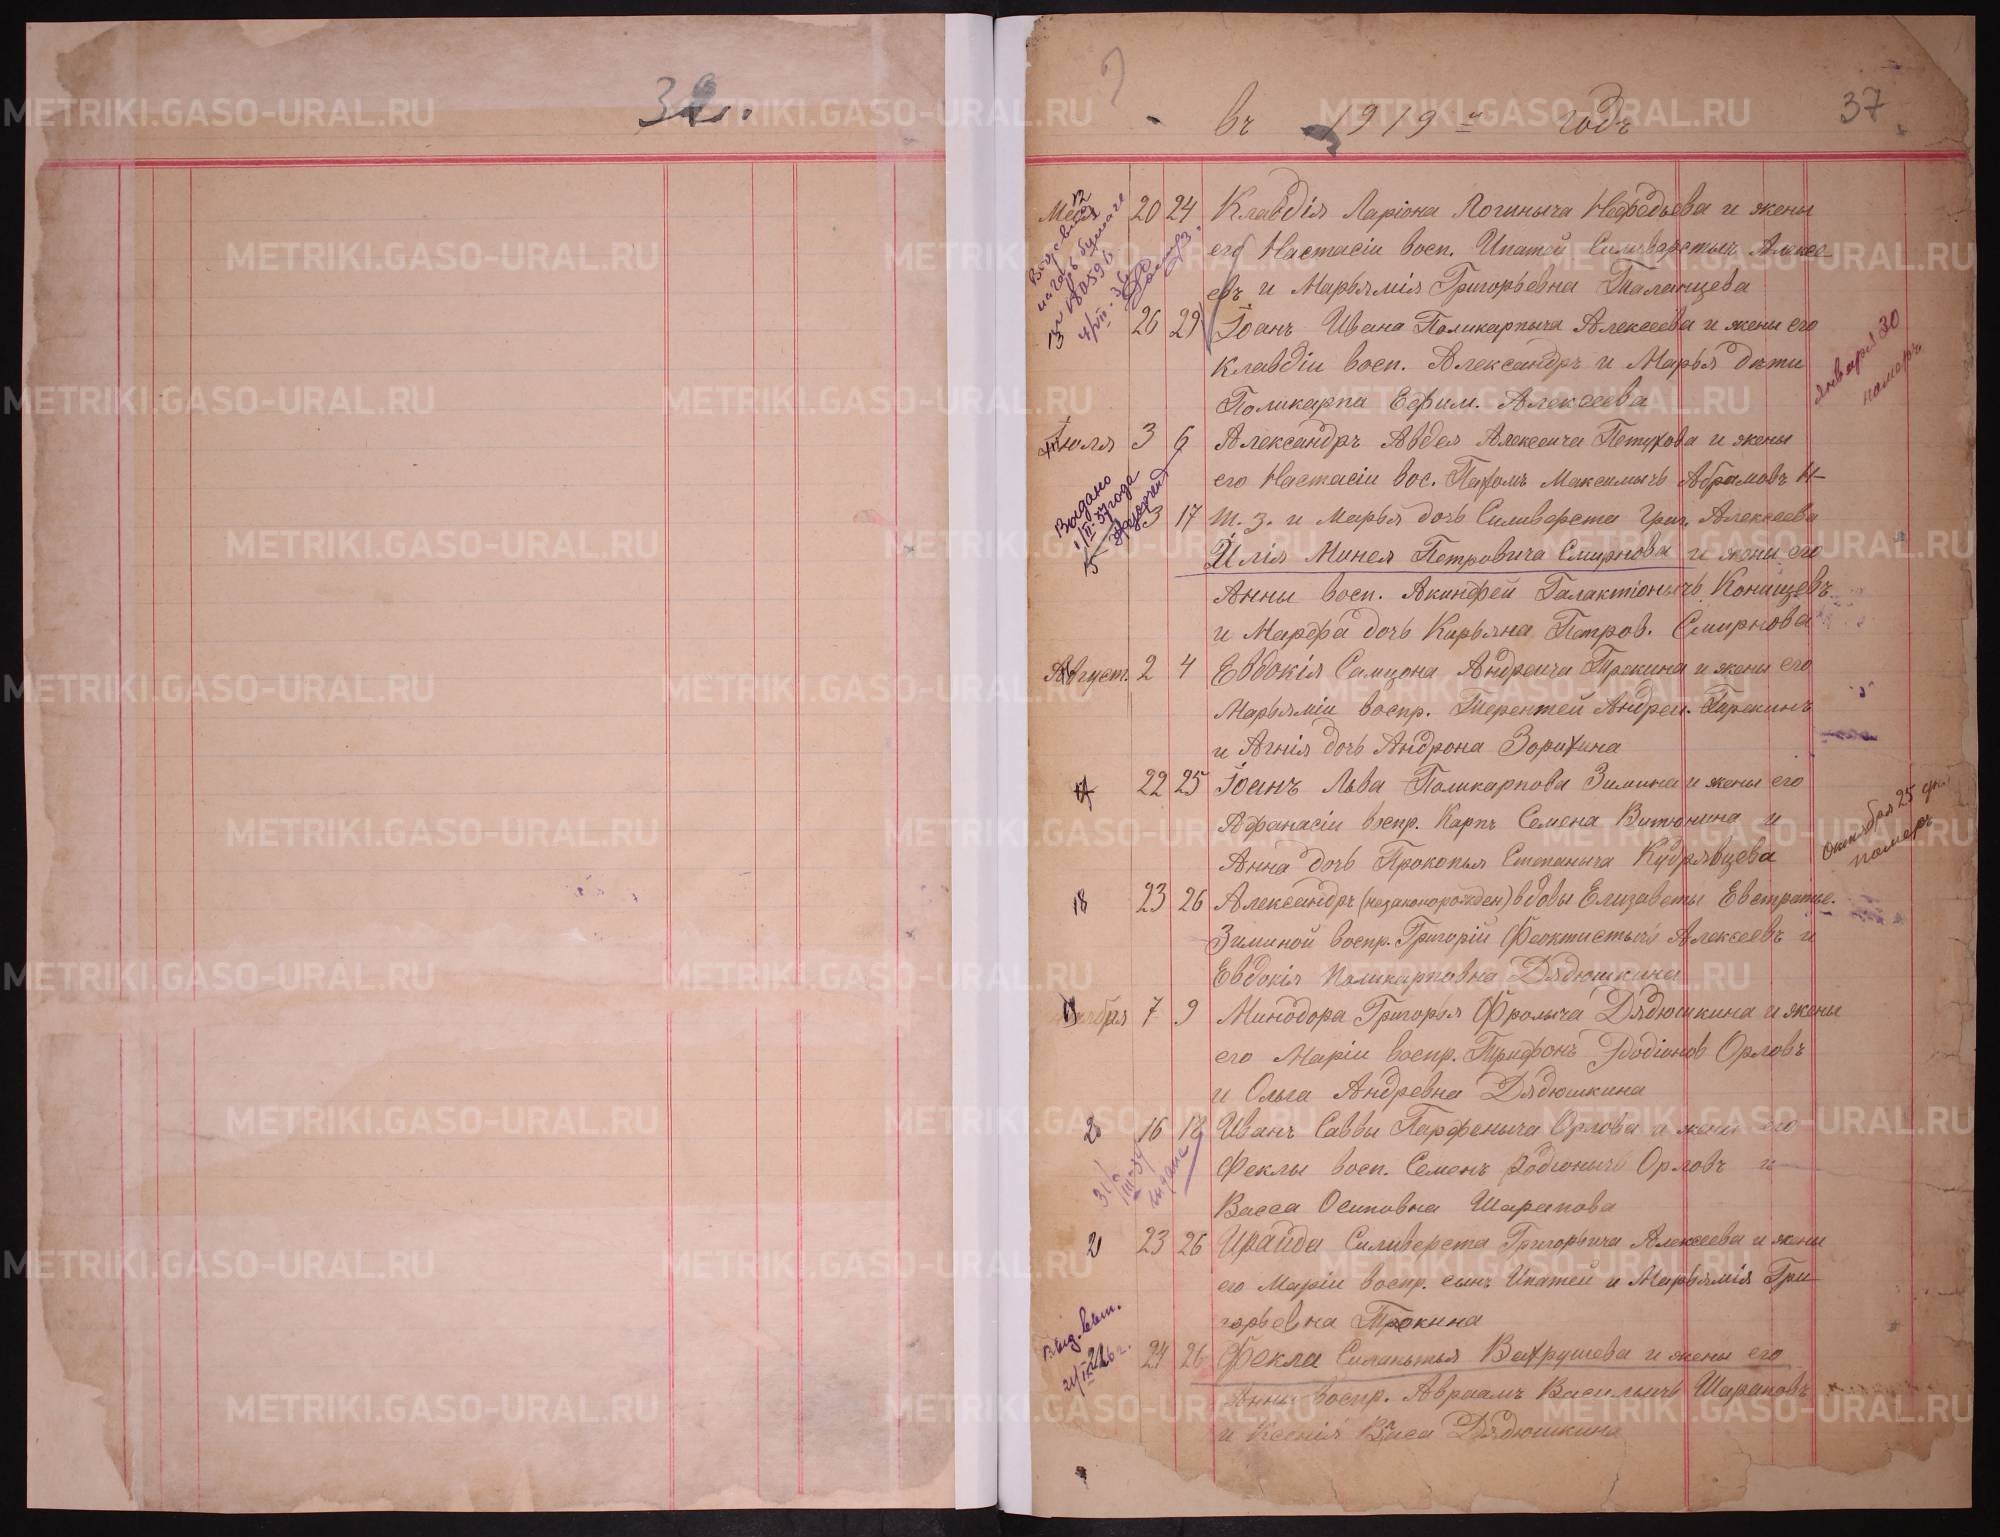 37
въ 1919 м годъ
Мая 12 20 24 Клавдія Ларіона Логиныча Нефодьева и жены
его Настасіи восп. Ипатей Силиверстычъ Алексе-
евъ и Марьямія Григорьевна Таланцева
13 26 29 Іоанъ Ивана Поликарпыча Алексеева и жены его
Клавдіи восп. Александръ и Марья дети
Поликарпа Ефим. Алексеева
января 30
померъ
Іюля 3 6 Александръ Авдея Алексеича Петухова и жены
его Настасіи вос. Пахомъ Максимычъ Абрамовъ Н-
Т. З. и Марья дочь Силиверста Григ. Алексеева
Выдано
1/II-37 года
15 3 17 Илія Минея Петровича Смирнова и жены его
Анны восп. Акинфей Галактіонычъ Конищевъ
и Марфа дочь Кирьяна Петров. Смирнова
Август. 2 4 Евдокія Самцона Андреича Трекина и жены его
Марьяміи воспр. Терентей Андреи. Трекинъ
и Агнія дочь Андрона Зорихина
17 22 25 Іоанъ Льва Поликарпова Зимина и жены его
Афанасіи воспр. Карпъ Семена Витюнина и
Анна дочь Прокопья Степаныча Кудрявцева
Октября 25 дня
померъ
18 23 26 Александръ (незаконорожден) вдовы Елизаветы Евстратье.
Зиминой воспр. Григорій Феоктистычъ Алексеевъ и
Евдокія Поликарповна Дядюшкина
7 9 Минодора Григорья Фролыча Дядюшкина и жены
его Маріи воспр. Трифонъ Родіонов Орловъ
и Ольга Андревна Дядюшкина
20 16 18 Иванъ Саввы Парфеныча Орлова и жены его
Феклы восп. Семенъ Родіонычъ Орловъ и
Васса Осиповна Шарапова
21 23 26 Ираида Силиверста Григорьича Алексеева и жены
его Маріи воспр. сынъ Ипатей и Марьямія Гри-
горьевна Трекина
24 26 Фекла Силантья Вахрушева и жены его
Анны воспр. Авраамъ Васильичъ Шараповъ
и Ксенія Дядюшкина
METRIKI.GASO-URAL.RU